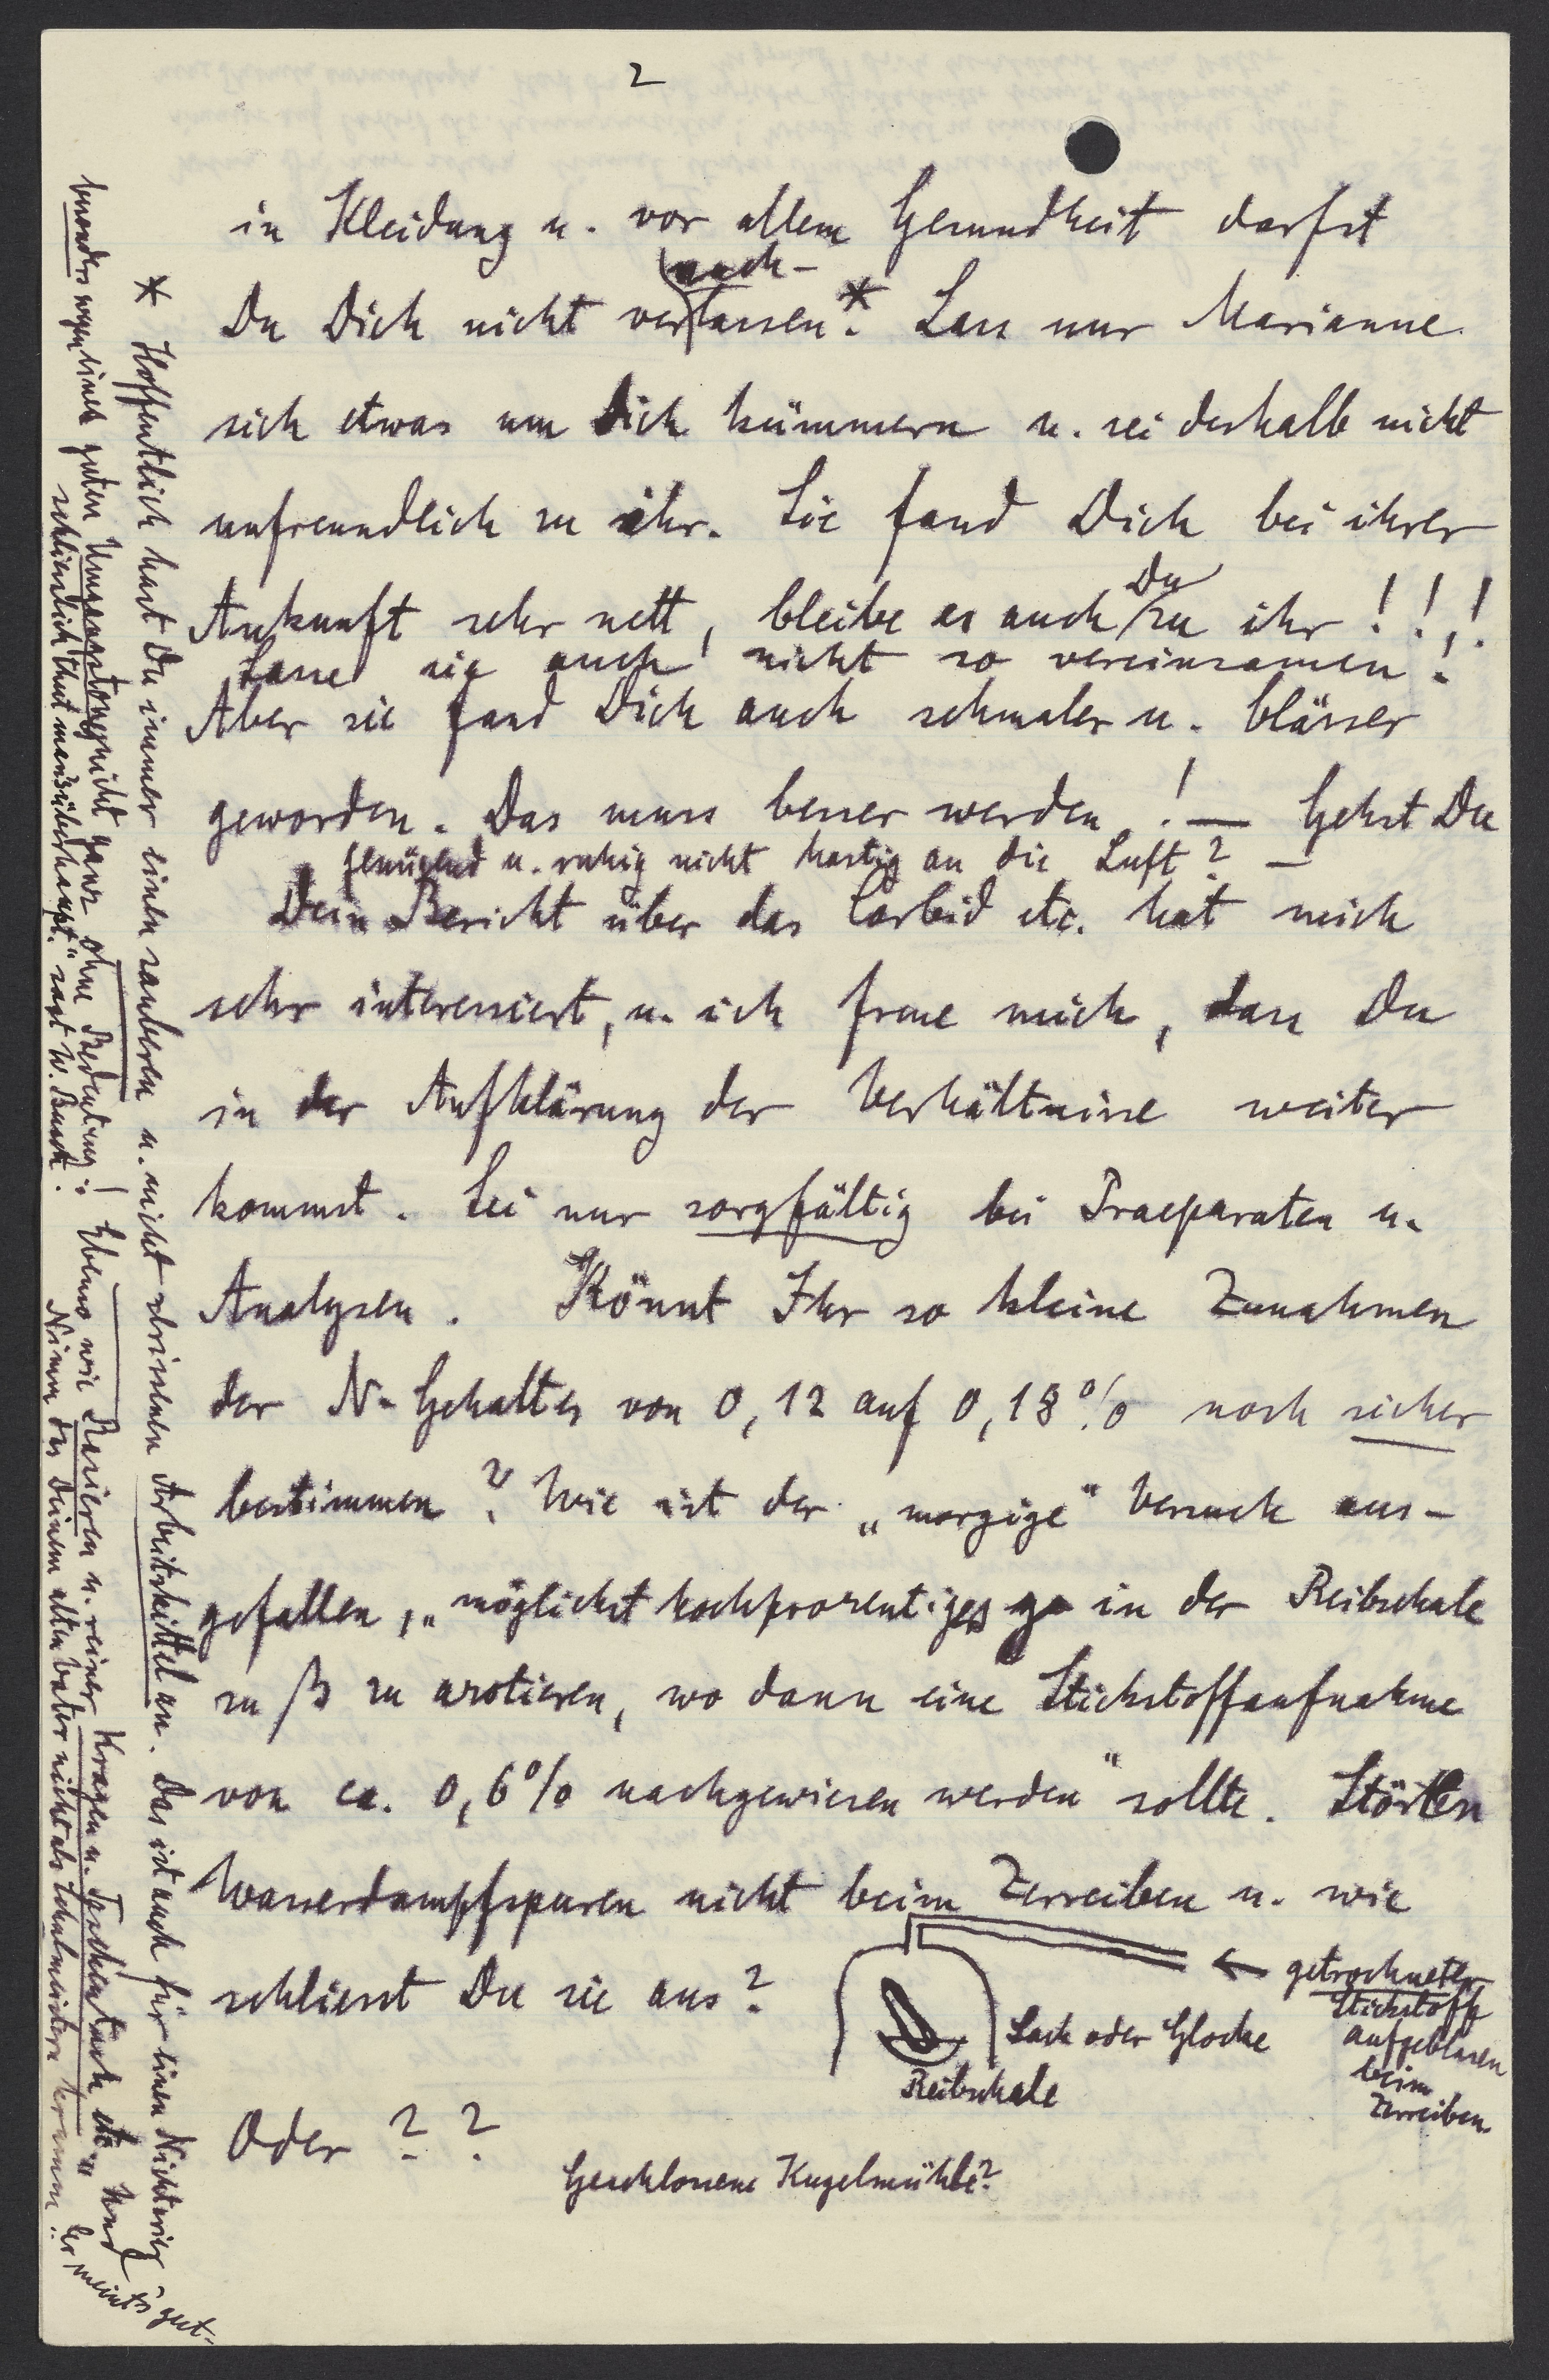 2
in Kleidung u. vor allem Gesundheit darfst
nach-
Du Dich nicht verlassen.* Lass nur Marianne
sich etwas um Dich kümmern u. sei deshalb nicht
unfreundlich zu ihr. Sie fand Dich bei ihrer
Du
Ankunft sehr nett, bleibe es auch zu ihr!!!
Lasse sie auch nicht so vereinsamen!
Aber sie fand Dich auch schmaler u. blässer
geworden. Das muss besser werden! — Gehst Du
genügend u. ruhig nicht hastig an die Luft? —
Dein Bericht über das Carbid etc. hat mich
sehr interessiert, u. ich freue mich, dass Du
in der Aufklärung der Verhältnisse weiter
kommst. Sei nur sorgfältig bei Praeparaten u.
Analysen. Könnt Ihr so kleine Zunahmen
der N-Gehaltes von 0,12 auf 0,18% noch sicher
bestimmen? Wie ist der „morgige" Versuch aus-
gefallen, „möglichst hochprozentiges in der Reibschale
zu β zu azotieren, wo dann eine Stickstoffaufnahme
von ca. 0,6% nachgewiesen werden" sollte. Störten
Wasserdampfspuren nicht beim Zerreiben u. wie
schliesst Du sie aus?
← getrockneter
Stickstoff
aufgeblasen
beim
Zerreiben
Sack oder Glocke
Reibschale
Oder ??
Geschlossene Kugelmühle?
* Hoffentlich hast Du immer einen sauberen u. nicht zerrissenen Arbeitskittel an. Das ist auch für einen Nichtarier
besonders wegen eines guten Umgangstons nicht ganz ohne Bedeutung! Ebenso wie Rasieren u. reiner Kragen u. Taschentuch etc. „Und is gut-
schliesslich thut man's überhaupt." sagt W. Busch. Nimm das Deinem alten Vater nicht als Schulmeistern krumm!! Er meint's